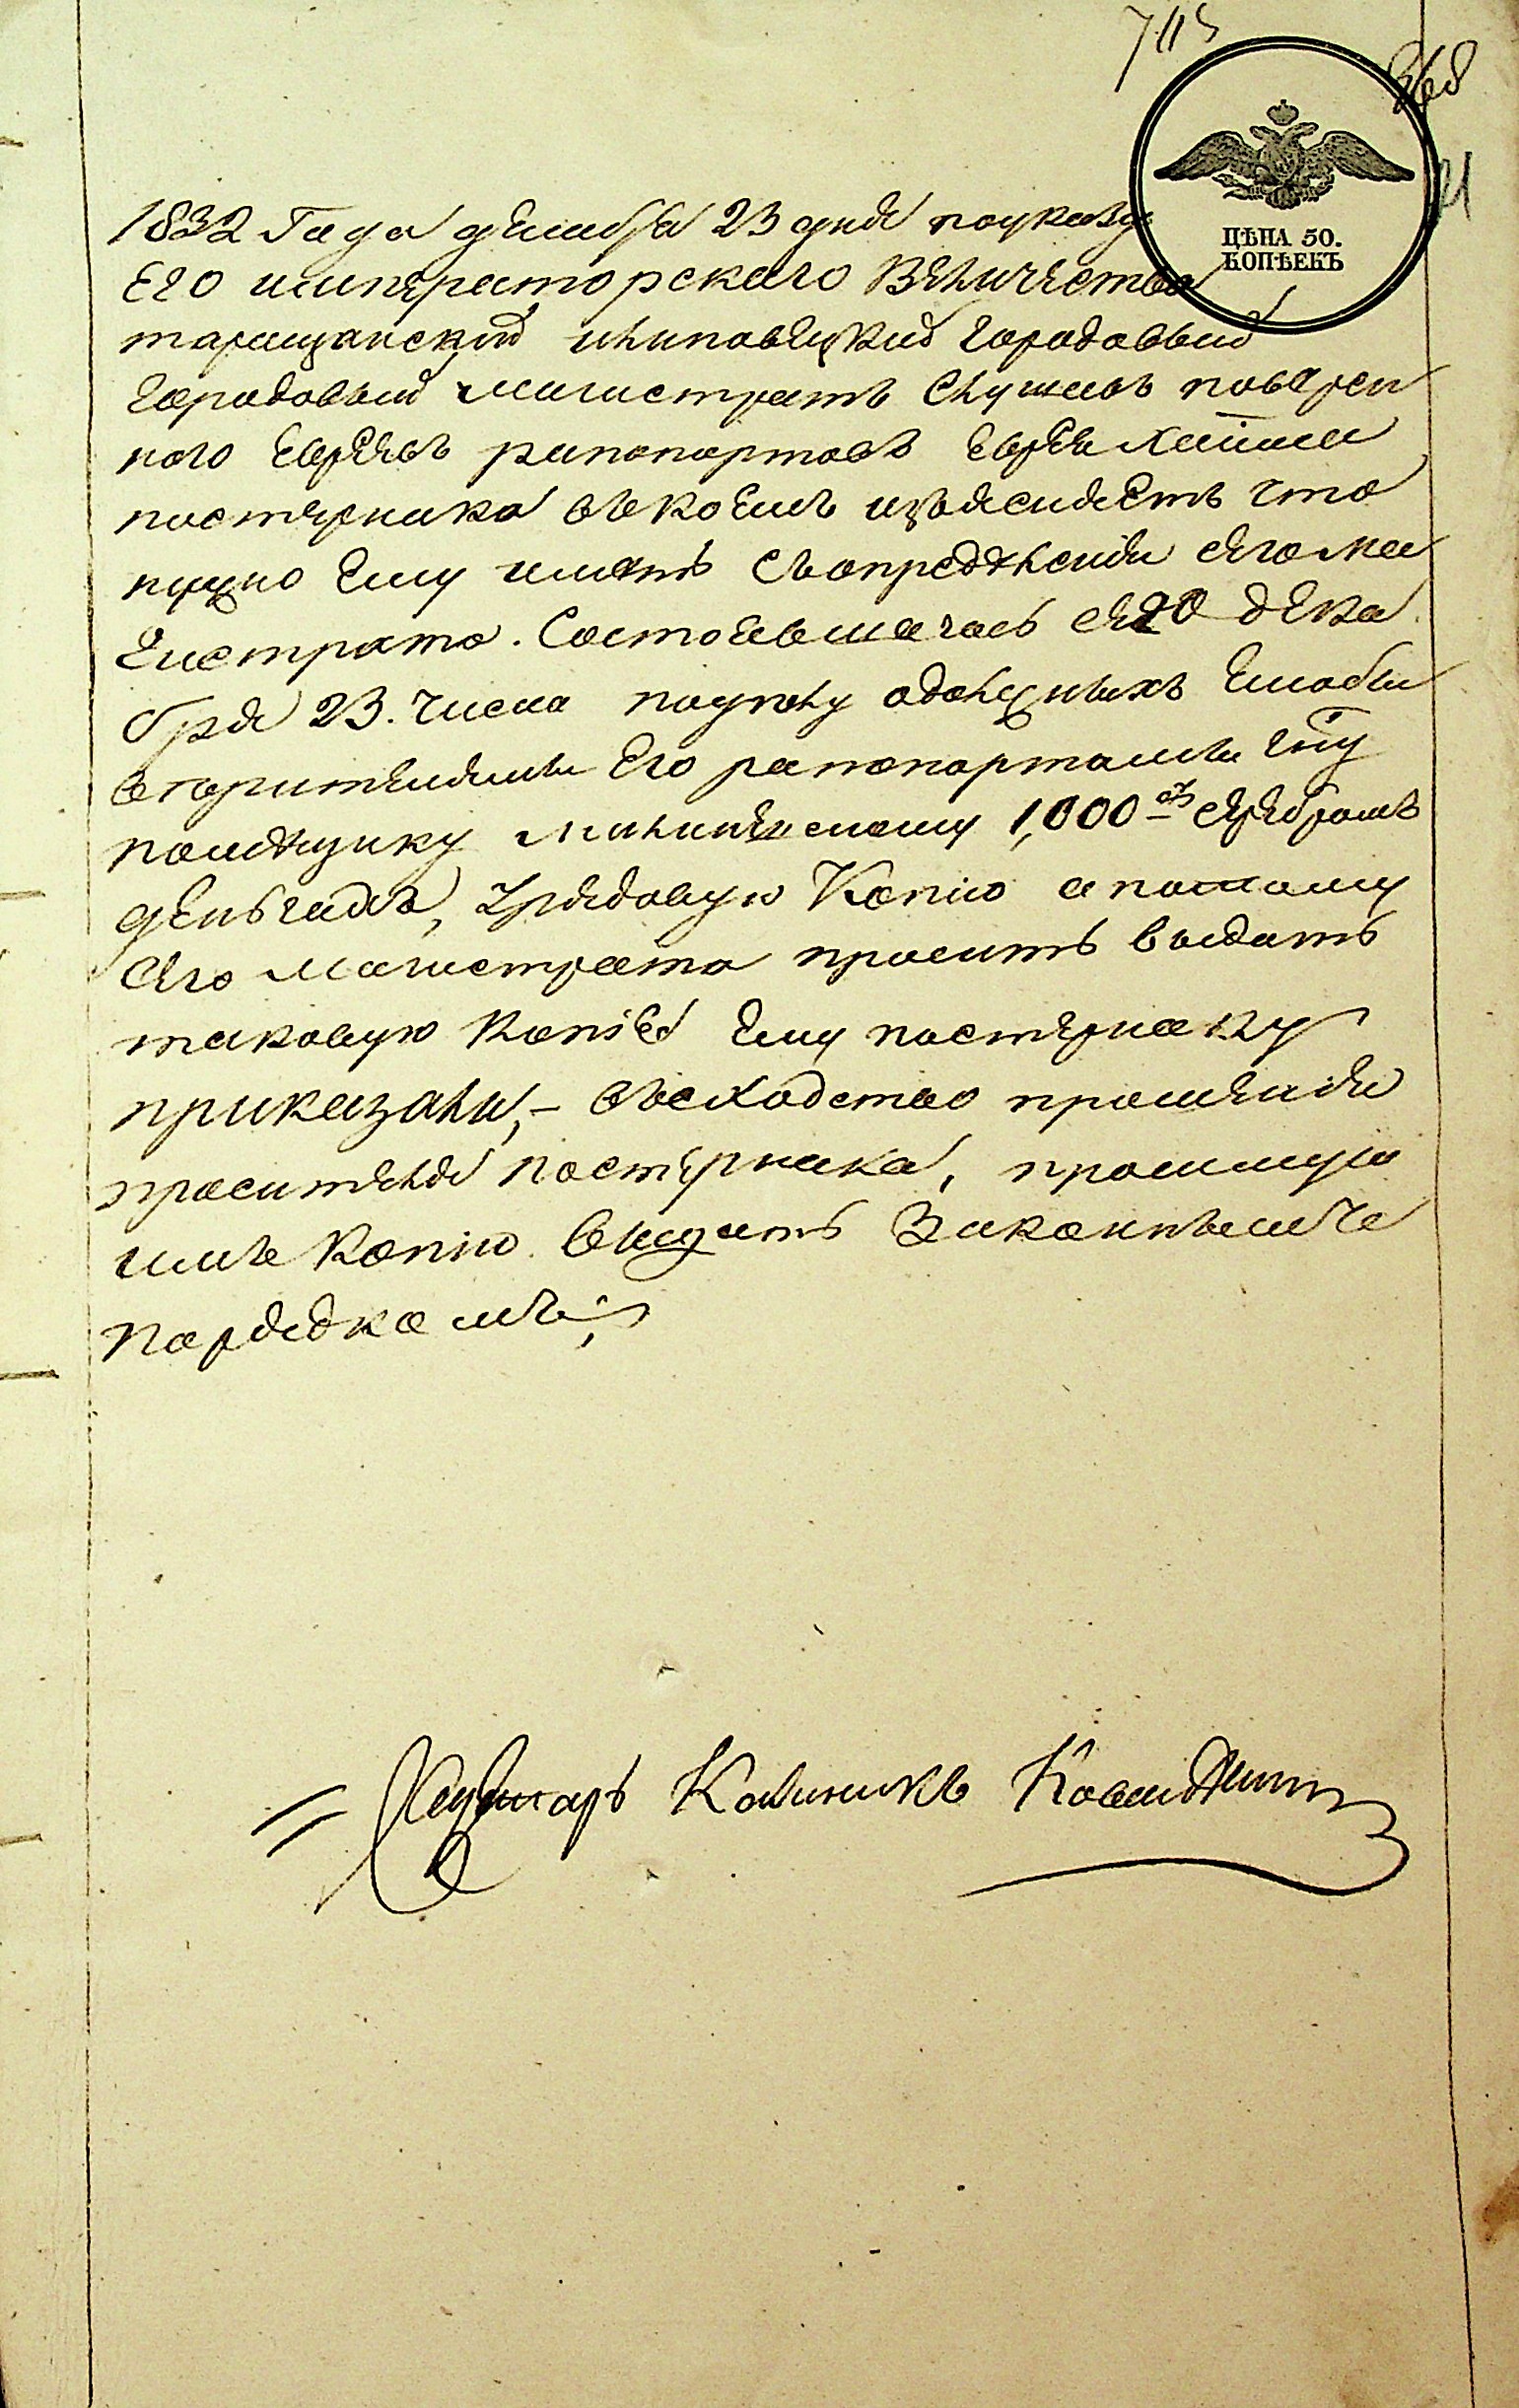 7115
868
21
ЦѢНА 50.
КОПѢЕКЪ
1832 Года декабря 23 дня поуказу
Его императорского Величества
таращанский илиповецкий городовый
городовый магистратъ Слушавъ поверен
ного евреевъ рапопортовъ еврея Хаима
пастернака въкоемъ изъясняетъ что
нужно ему иметь Съопределения сегома
гистрата. Состоявшагось сего дека
бря 23. числа поделу одолжныхъ
впретензии Его рапопортами Гну
помещику 1,000 серебромъ
деньгахъ, Урядовую Копию апотому
сего магистрата проситъ выдать
таковую Копiю ему пастернаку
приказали, – въсходство прошения
просителя пастернака, просимую
имъ Копию выдать Законнымъ
порядкомъ;
Секретарь Калиникъ